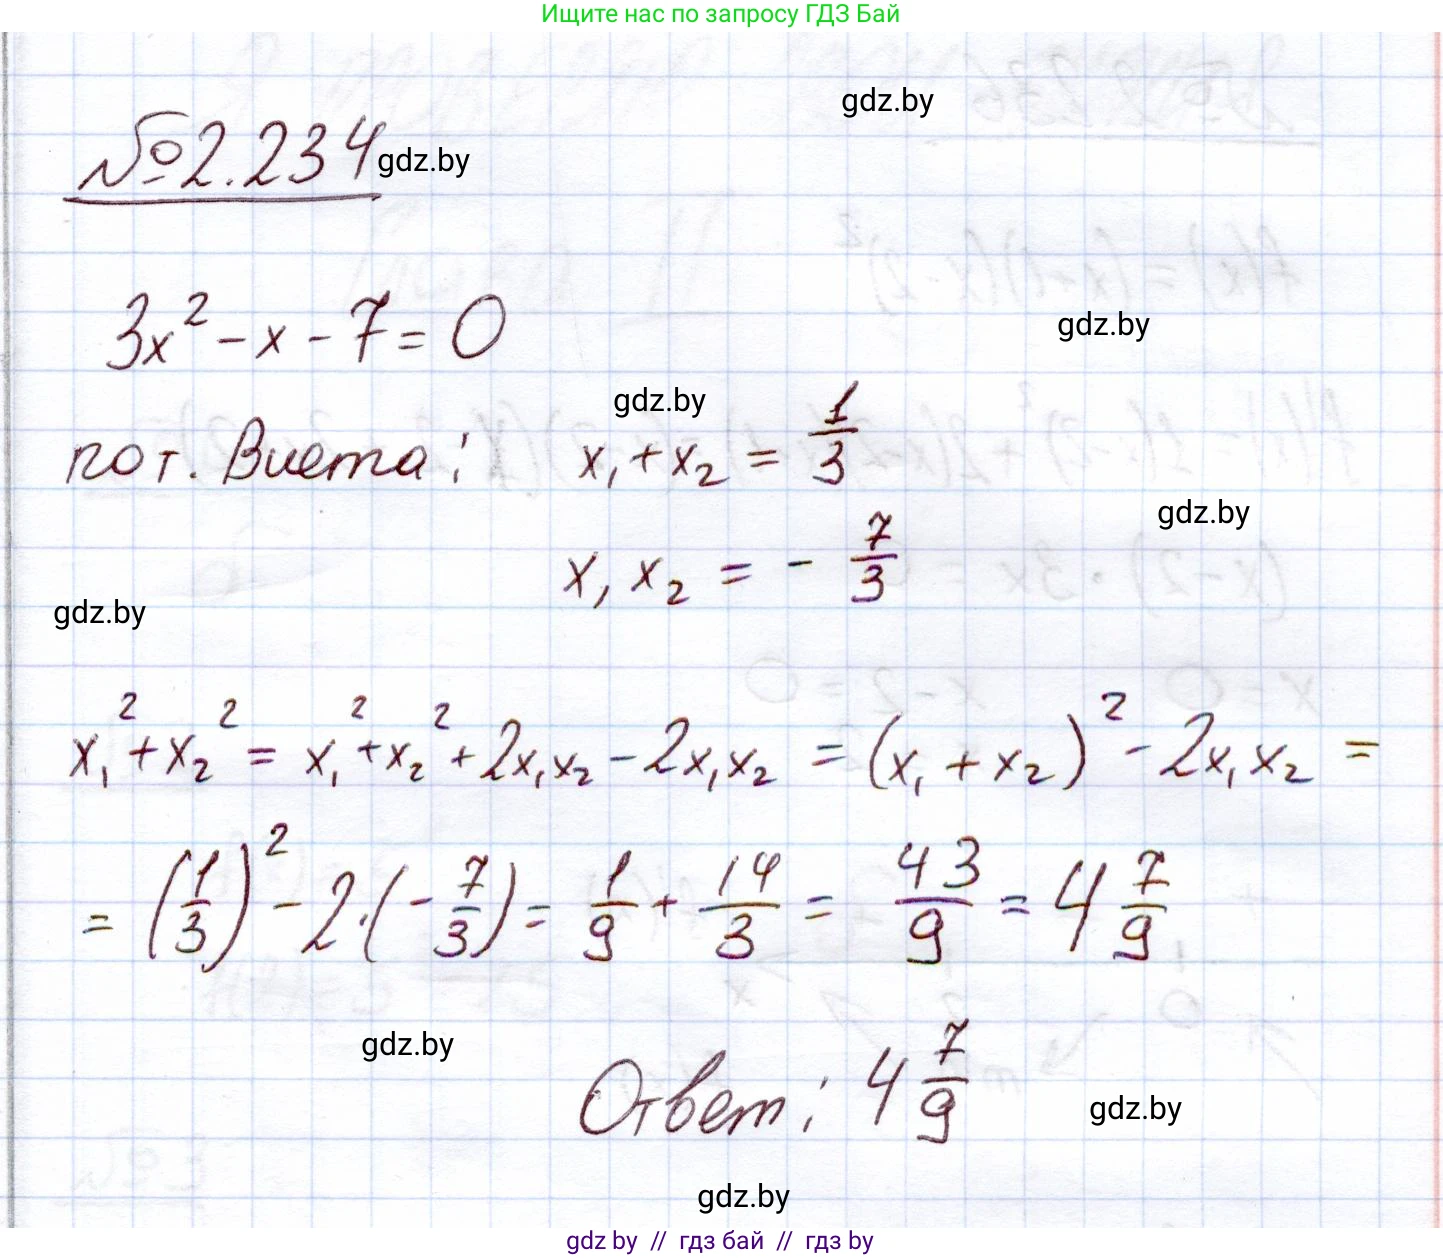 Ищите нас по запросу ГДЗ Бай
gdz.by
№2.234 gdz.by
3x² - x - 7 = 0
gdz.by
gdz.by
по т. Виета: x₁ + x₂ = 1/3
gdz.by
x₁ x₂ = - 7/3
gdz.by
x₁² + x₂² = x₁² + x₂² + 2x₁x₂ - 2x₁x₂ = (x₁ + x₂)² - 2x₁x₂ =
= (1/3)² - 2·(- 7/3) = 1/9 + 14/3 = 43/9 = 4 7/9
gdz.by
Ответ: 4 7/9
gdz.by
gdz.by
gdz by // гдз бай // гдз by